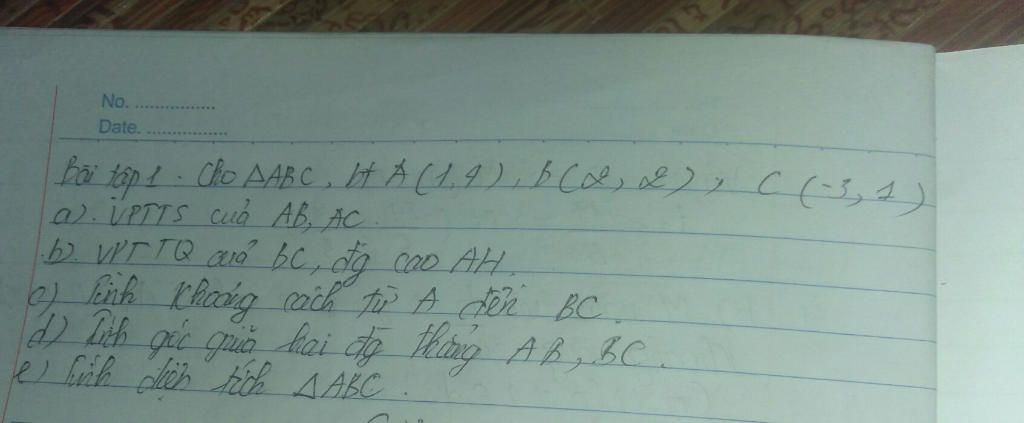 No. ................
Date. ................
Bài tập 1. Cho ΔABC, bt A(1,4), B(2,2), C(-3,1)
a). VPTTS của AB, AC.
b). VPTTQ của BC, đg cao AH.
c) Tính khoảng cách từ A đến BC.
d) Tính góc giữa hai đg thẳng AB, BC.
e) Tính diện tích ΔABC.